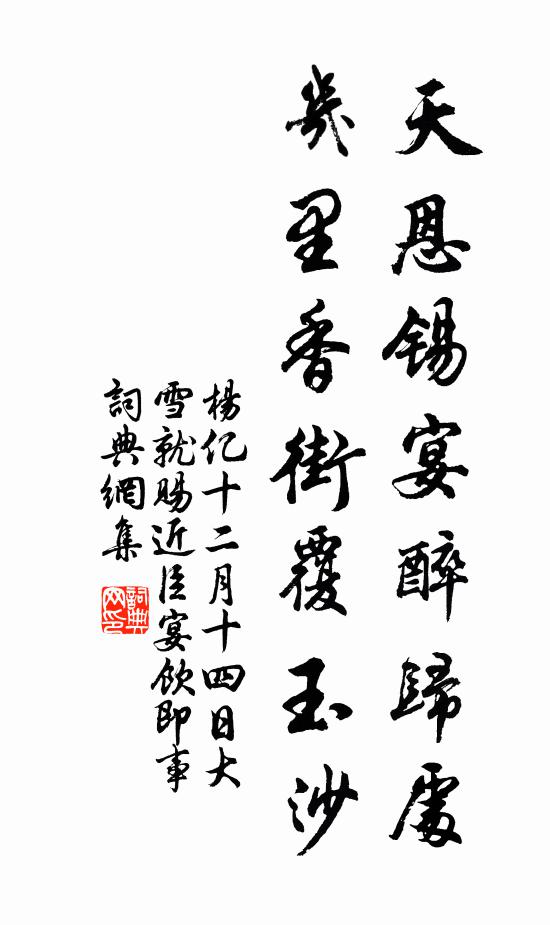 天恩錫宴醉歸處
幾里香街覆玉沙
楊億十二月十四日大
雪就賜近臣宴飲即事
詞典網集
詞典
网印